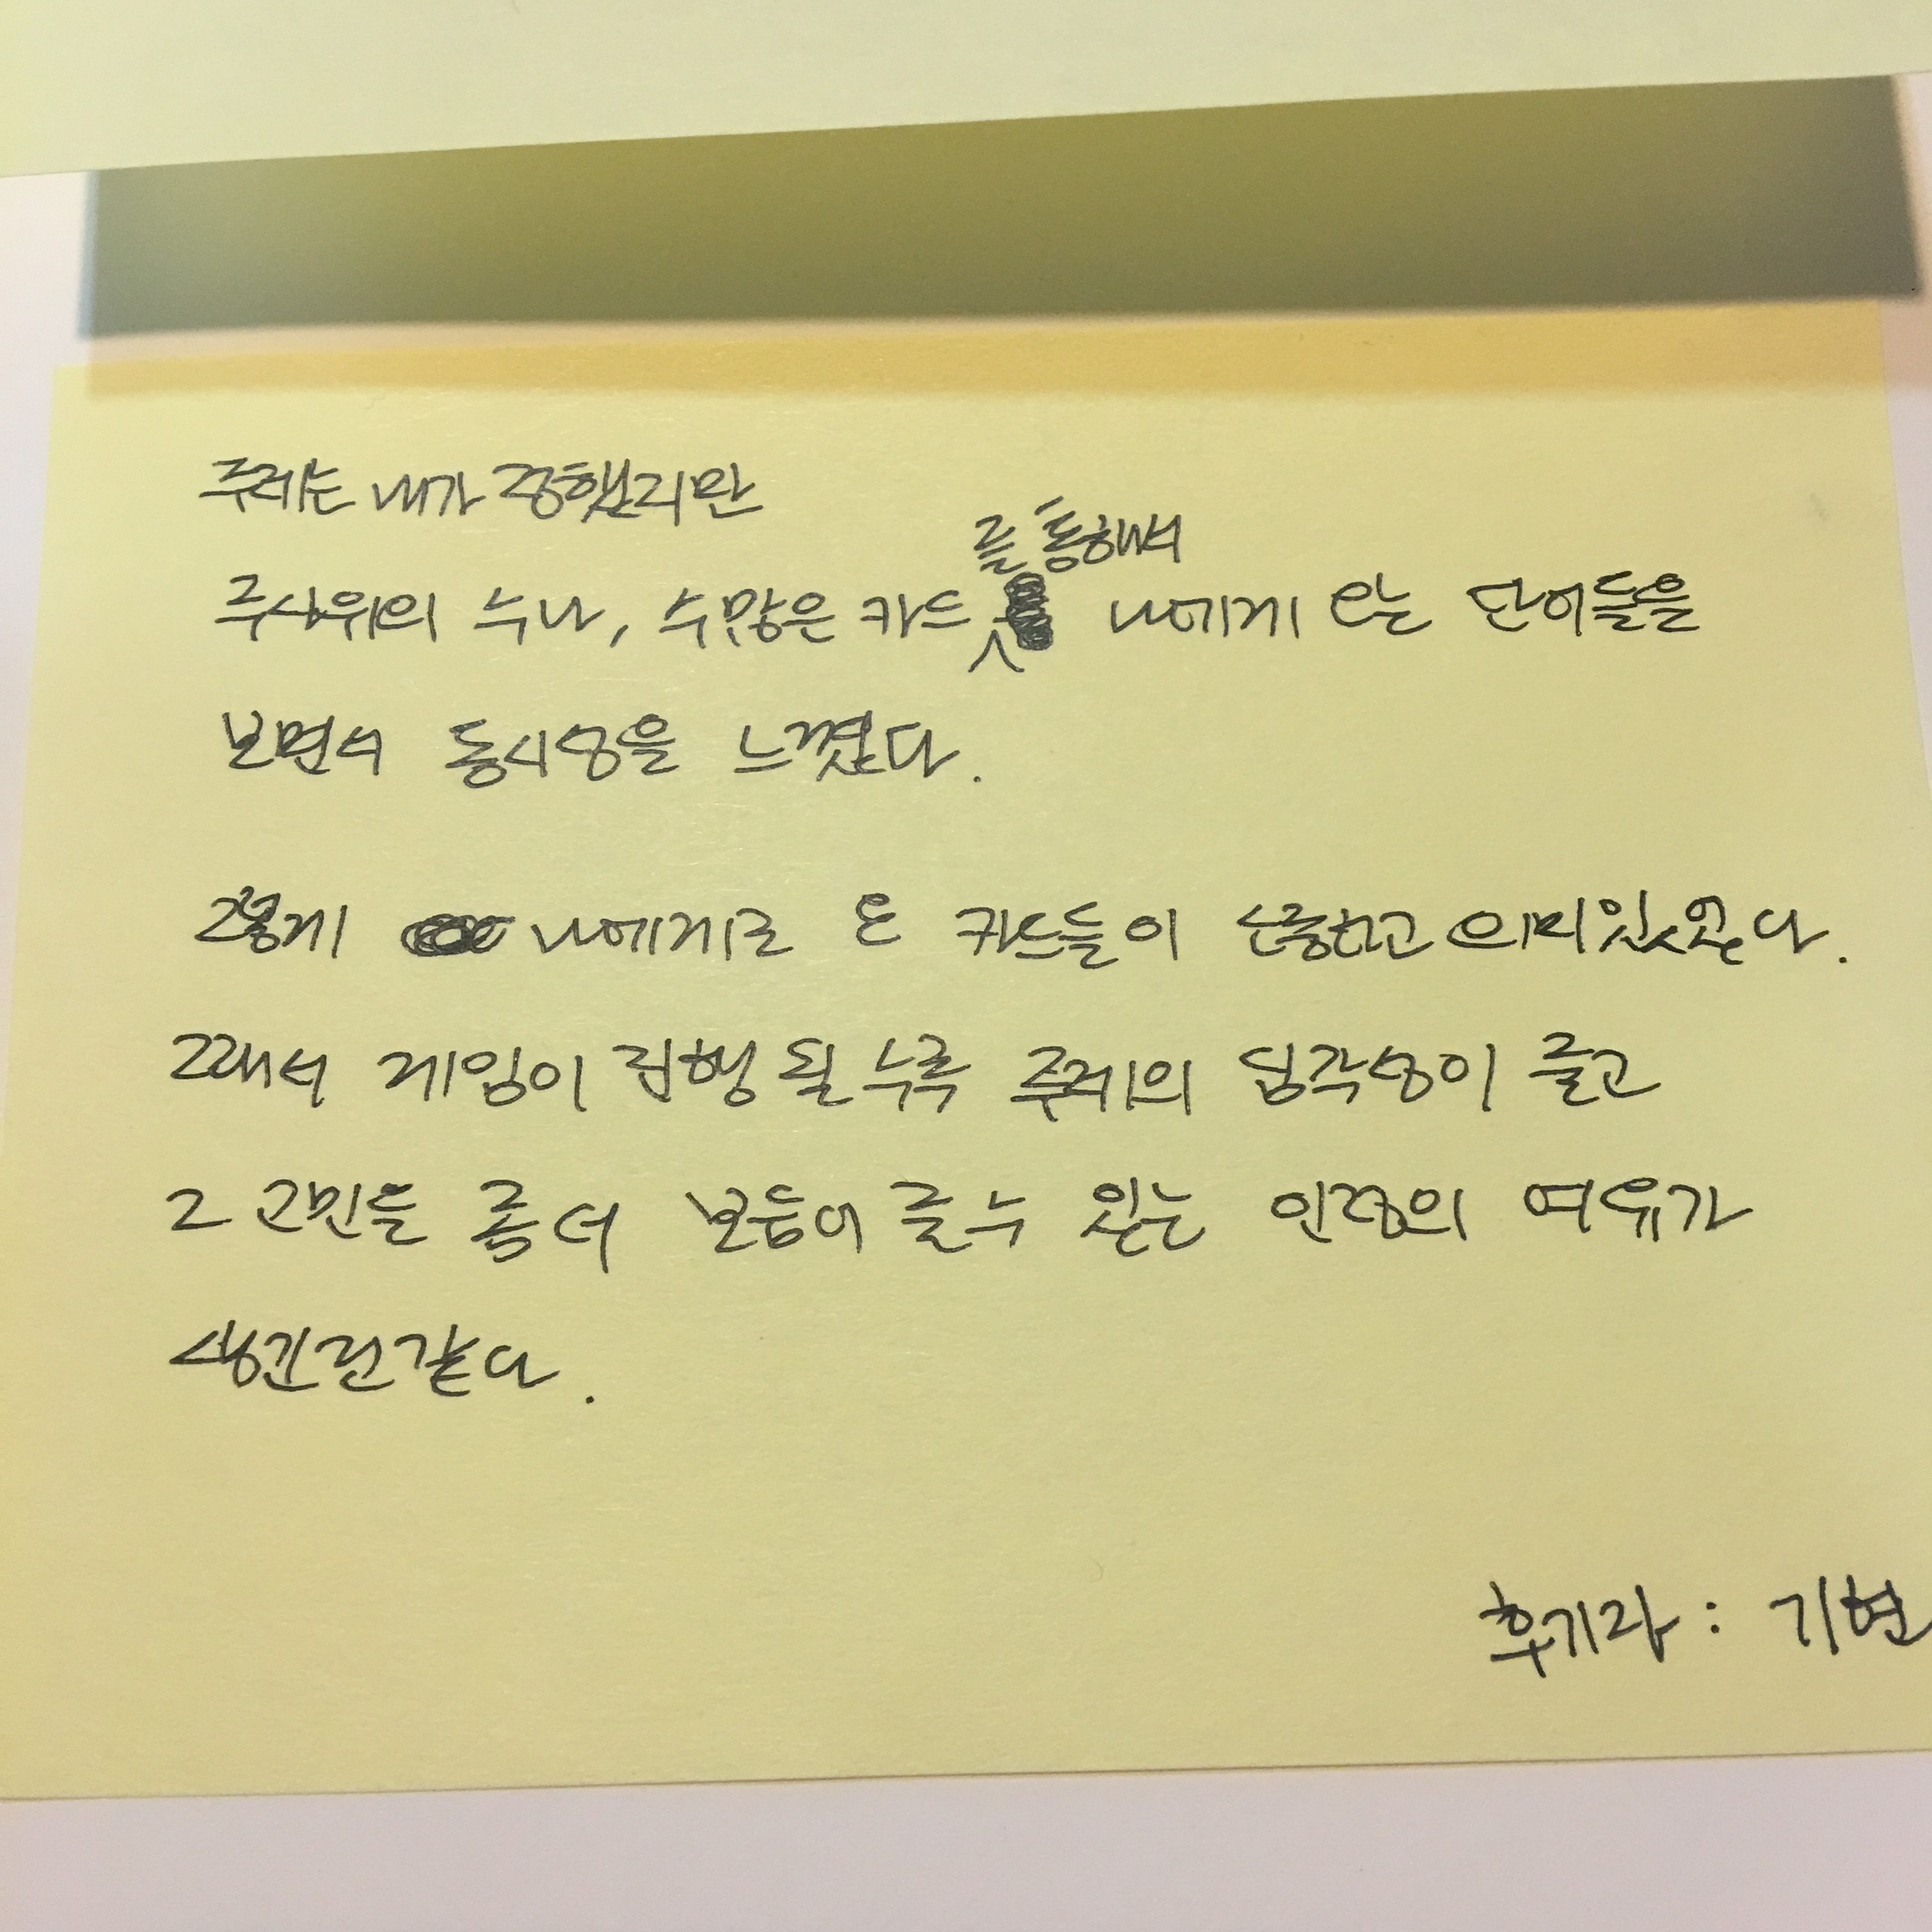 주제는 내가 정했지만
주사위의 수나, 수많은 카드를 통해서 나에게 오는 단어들을
보면서 동시성을 느꼈다.
그렇게 나에게로 온 카드들이 소중하고 의미있었다.
그래서 게임이 진행 될 수록 주제의 심각성이 줄고
그 고민을 좀 더 보듬어 줄 수 있는 인정의 여유가
생긴것같다.
후기자 : 기현